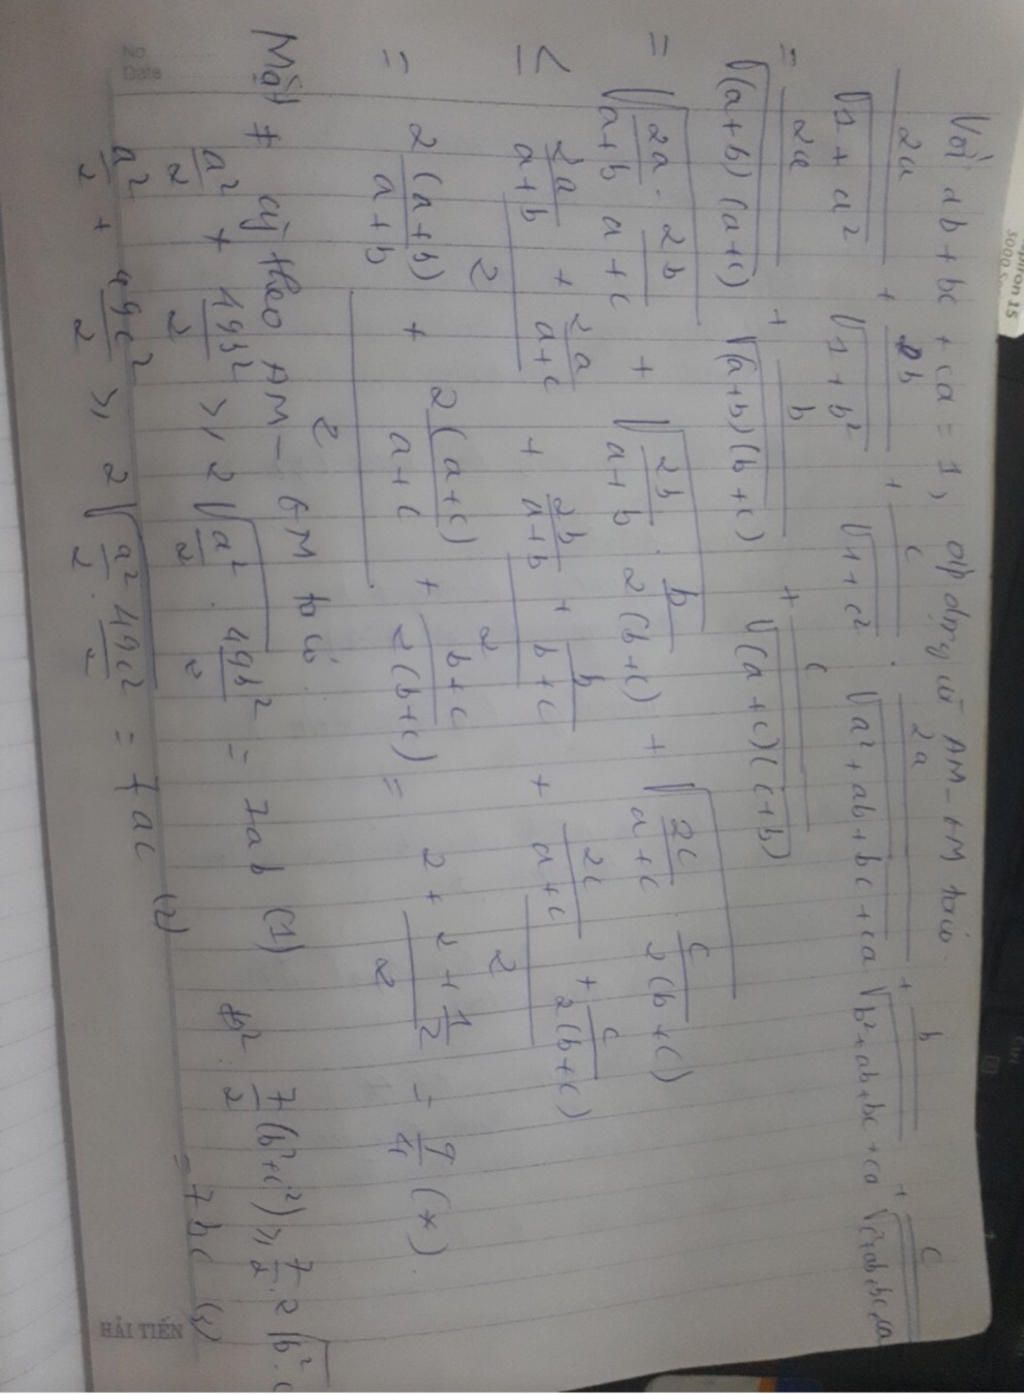 Với ab + bc + ca = 1, áp dụng AM-GM ta có
2a/√(1+a²) + 2b/√(1+b²) + c/√(1+c²) . 2a/√(a²+ab+bc+ca) + b/√(b²+ab+bc+ca) + c/√(c²+ab+bc+ca)
= 2a/√((a+b)(a+c)) + b/√((a+b)(b+c)) + c/√((a+c)(c+b))
= √(2a/(a+b) . 2b/(a+c)) + √(2b/(a+b) . b/(2(b+c))) + √(2c/(a+c) . c/(2(b+c)))
≤ (2a/(a+b) + 2a/(a+c))/2 + (2b/(a+b) + b/(b+c))/2 + (2c/(a+c) + c/(2(b+c)))/2
= (2(a+b)/(a+b) + 2(a+c)/(a+c) + (b+c)/(2(b+c)))/2 = (2 + 2 + 1/2)/2 = 9/4 (*)
Mặt ≠ theo AM-GM ta có
a²/2 + 49b²/2 ≥ 2√(a²/2 . 49b²/2) = 7ab (1)
7/2(b²+c²) ≥ 7/2 . 2√(b² .
= 7bc
a²/2 + 49c²/2 ≥ 2√(a²/2 . 49c²/2) = 7ac (2)
No
Date
HẢI TIẾN
Ctrl